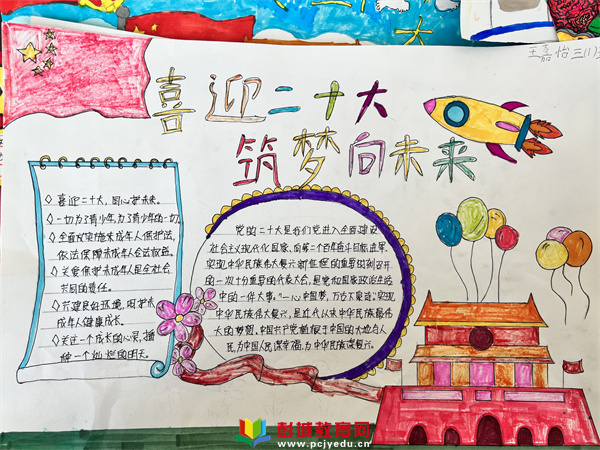 王嘉怡三(1)
喜迎二十大
筑梦向未来
◇喜迎二十大,同心护未来。
◇一切为了青少年,为了青少年的一切
◇全面贯彻落实未成年人保护法,
依法保障未成年人合法权益。
◇关爱保护未成年人是全社会
共同的责任。
◇共建良好环境,呵护未
成年人健康成长。
◇关注一个成长的心灵,播
种一个灿烂的明天。
党的二十大是我们党进入全面建设
社会主义现代化国家、向第二个百年奋斗目标进军,
实现中华民族伟大复兴新征程的重要时刻召开
的一次十分重要的代表大会,是党和国家政治生活
中的一件大事。"一心中国梦,万古下泉诗"实现
中华民族伟大复兴,是近代以来中华民族最伟
大的梦想。中国共产党植根于中国的大地与人
民,为中国人民谋幸福,为中华民族谋复兴。
彭城教育网
www.pcjyedu.cn